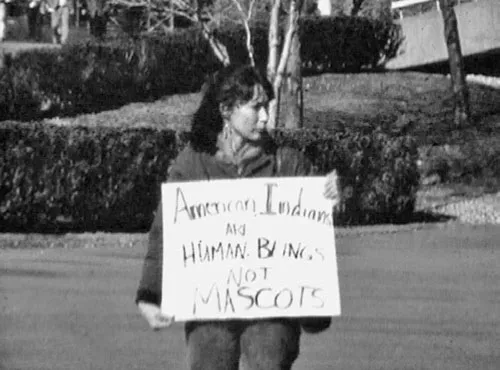 American Indians
ARE
HUMAN BEINGS
NOT
MASCOTS